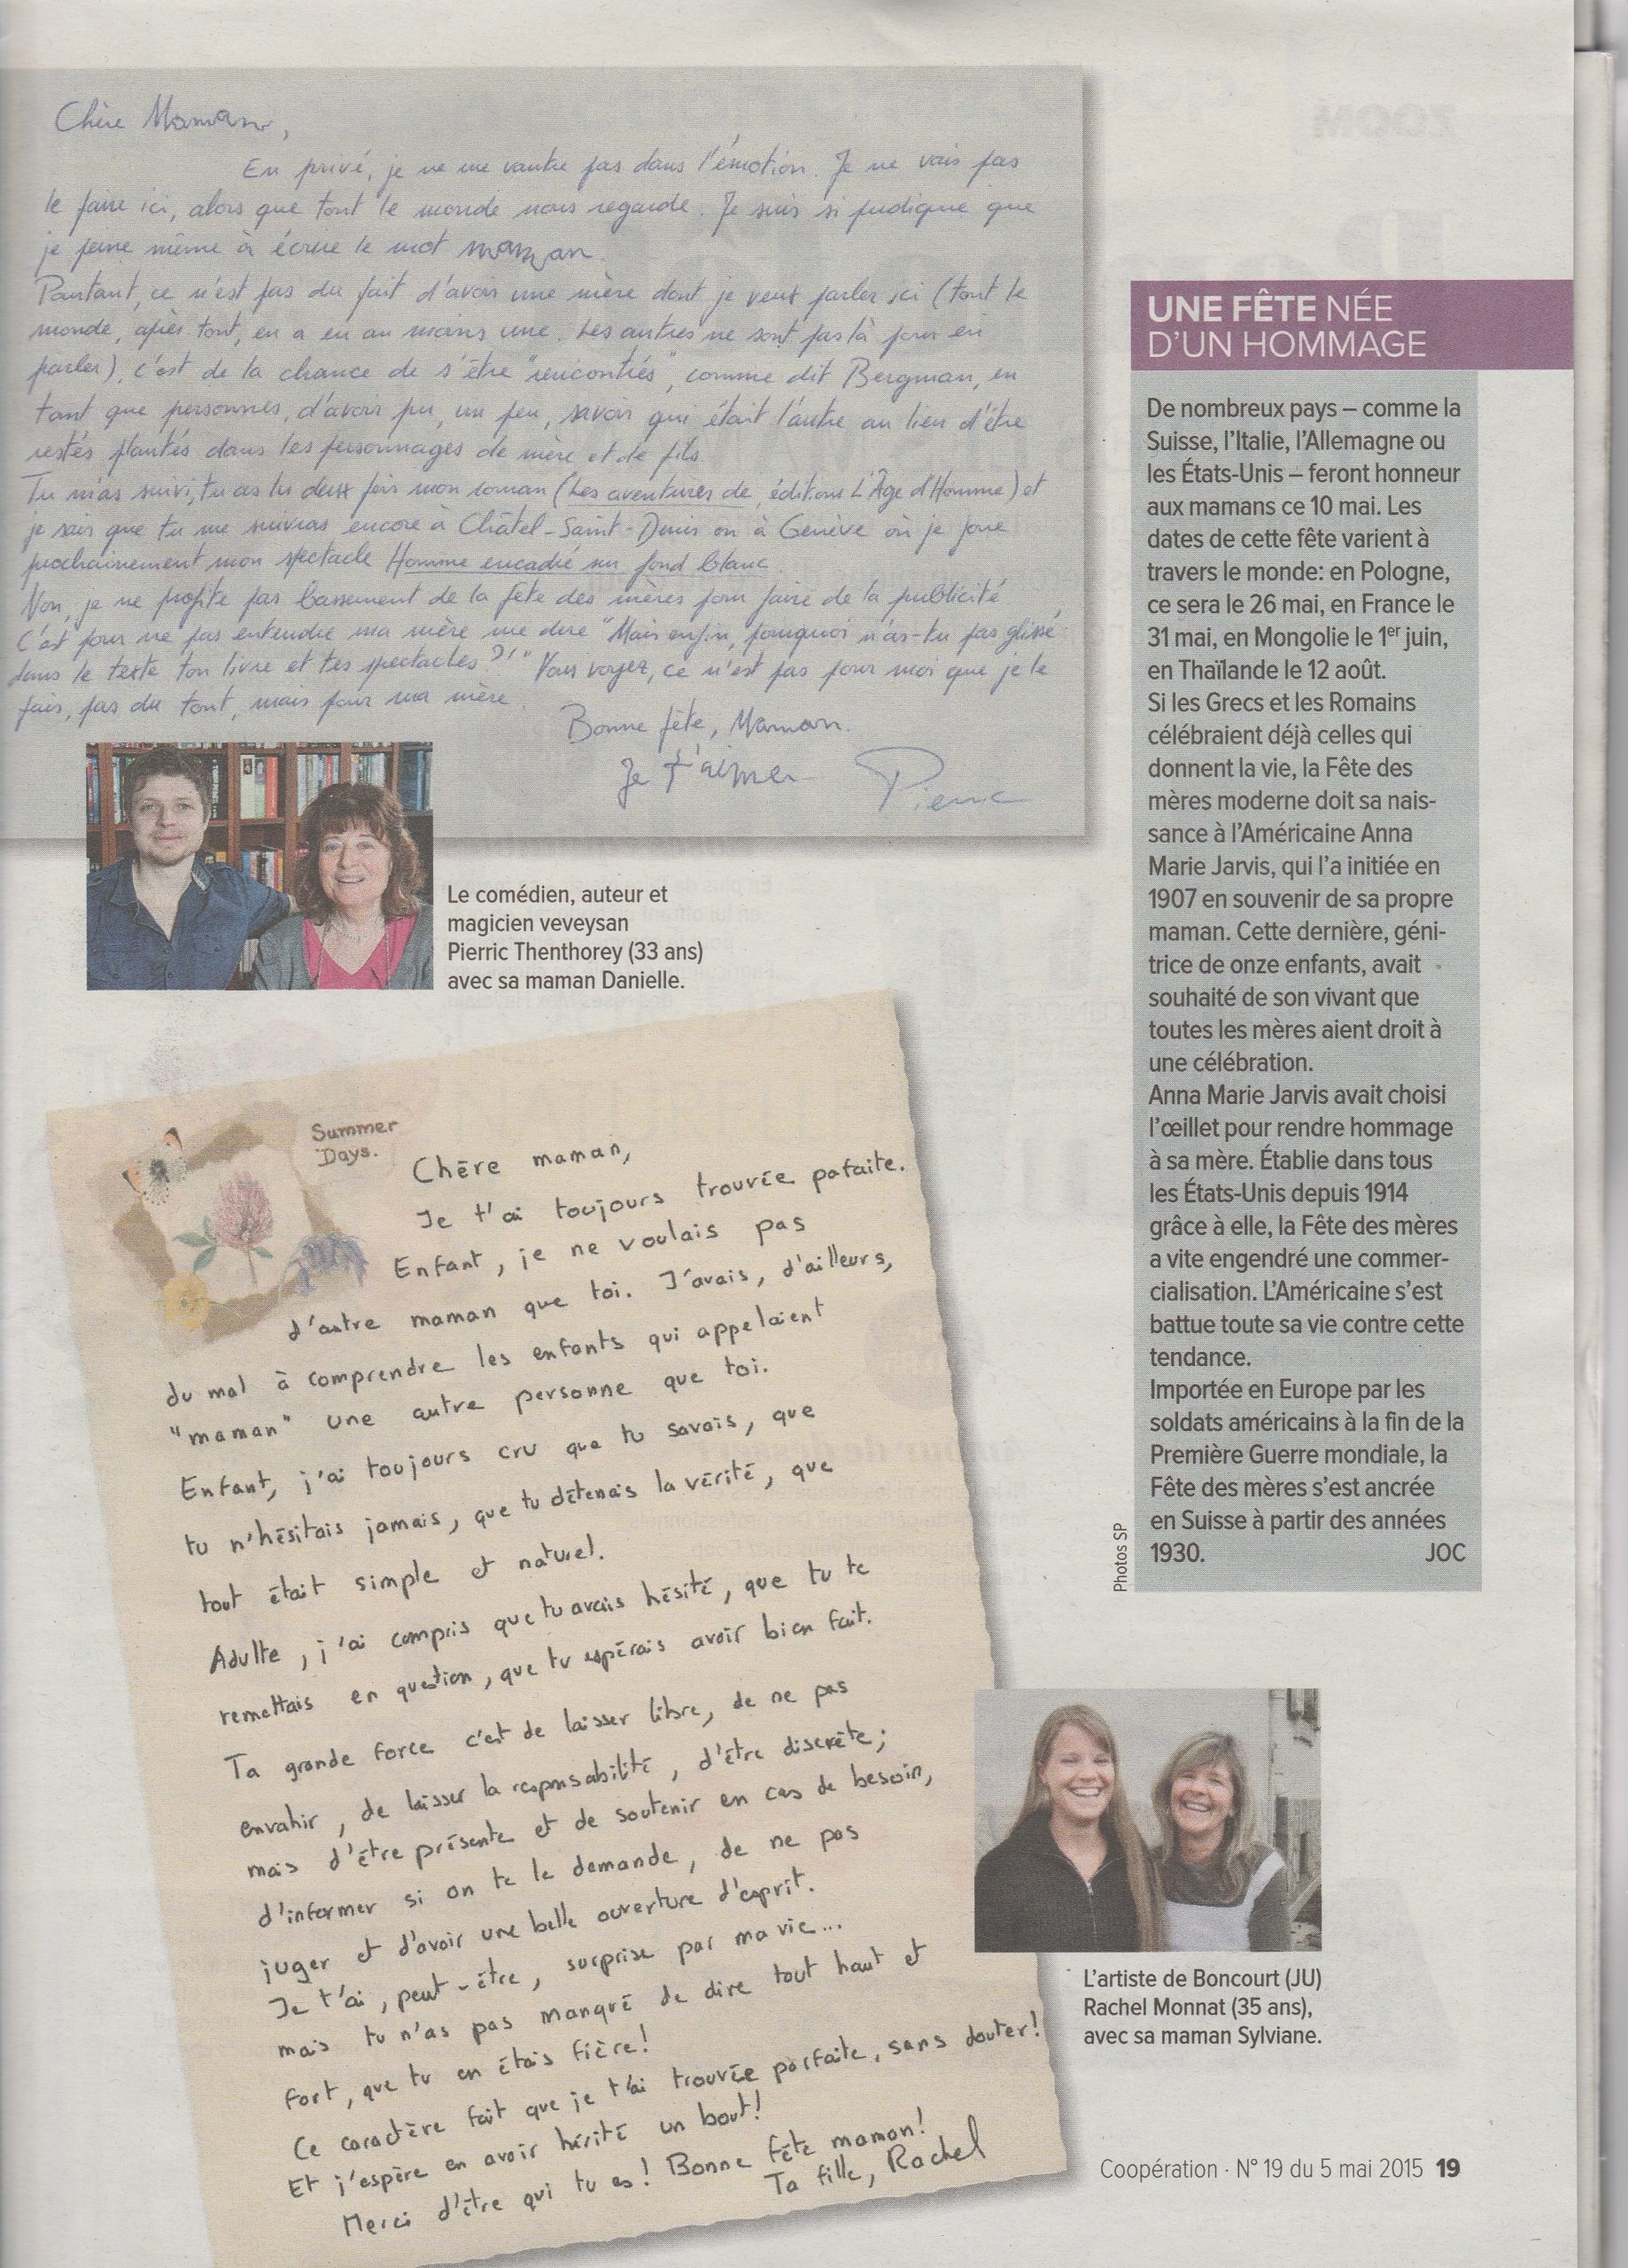 Chère Maman,
En privé, je ne me vautre pas dans l'émotion. Je ne vais pas
le faire ici, alors que tout le monde nous regarde. Je suis si pudique que
je peine même à écrire le mot maman.
Pourtant, ce n'est pas du fait d'avoir une mère dont je veux parler ici (tout le
monde, après tout, en a eu au moins une. Les autres ne sont pas là pour en
parler), c'est de la chance de s'être "rencontrés", comme dit Bergman, en
tant que personnes, d'avoir pu, un peu, savoir qui était l'autre au lieu d'être
restés plantés dans les personnages de mère et de fils.
Tu m'as suivi, tu as lu deux fois mon roman (Les aventures de, éditions L'Âge d'Homme) et
je sais que tu me suivras encore à Châtel-Saint-Denis ou à Genève où je joue
prochainement mon spectacle Homme encadré sur fond blanc.
Non, je ne profite pas bassement de la fête des mères pour faire de la publicité,
c'est pour ne pas entendre ma mère me dire "Mais enfin, pourquoi n'as-tu pas glissé
dans le texte ton livre et tes spectacles?!" Vous voyez, ce n'est pas pour moi que je le
fais, pas du tout, mais pour ma mère.
Bonne fête, Maman.
Je t'aime
Pierric
Le comédien, auteur et
magicien veveysan
Pierric Thenthorey (33 ans)
avec sa maman Danielle.
Summer
Days.
Chère maman,
Je t'ai toujours trouvée pafaite.
Enfant, je ne voulais pas
d'autre maman que toi. J'avais, d'ailleurs,
du mal à comprendre les enfants qui appelaient
"maman" une autre personne que toi.
Enfant, j'ai toujours cru que tu savais, que
tu n'hésitais jamais, que tu détenais la vérité, que
tout était simple et naturel.
Adulte, j'ai compris que tu avais hésité, que tu te
remettais en question, que tu espérais avoir bien fait.
Ta grande force c'est de laisser libre, de ne pas
envahir, de laisser la responsabilité, d'être discrète;
mais d'être présente et de soutenir en cas de besoin,
d'informer si on te le demande, de ne pas
juger et d'avoir une belle ouverture d'esprit.
Je t'ai, peut-être, surprise par ma vie...
mais tu n'as pas manqué de dire tout haut et
fort, que tu en étais fière!
Ce caractère fait que je t'ai trouvée parfaite, sans douter!
Et j'espère en avoir hérité un bout!
Merci d'être qui tu es! Bonne fête maman!
Ta fille, Rachel
UNE FÊTE NÉE
D'UN HOMMAGE
De nombreux pays – comme la
Suisse, l'Italie, l'Allemagne ou
les États-Unis – feront honneur
aux mamans ce 10 mai. Les
dates de cette fête varient à
travers le monde: en Pologne,
ce sera le 26 mai, en France le
31 mai, en Mongolie le 1er juin,
en Thaïlande le 12 août.
Si les Grecs et les Romains
célébraient déjà celles qui
donnent la vie, la Fête des
mères moderne doit sa nais-
sance à l'Américaine Anna
Marie Jarvis, qui l'a initiée en
1907 en souvenir de sa propre
maman. Cette dernière, géni-
trice de onze enfants, avait
souhaité de son vivant que
toutes les mères aient droit à
une célébration.
Anna Marie Jarvis avait choisi
l'œillet pour rendre hommage
à sa mère. Établie dans tous
les États-Unis depuis 1914
grâce à elle, la Fête des mères
a vite engendré une commer-
cialisation. L'Américaine s'est
battue toute sa vie contre cette
tendance.
Importée en Europe par les
soldats américains à la fin de la
Première Guerre mondiale, la
Fête des mères s'est ancrée
en Suisse à partir des années
1930. JOC
Photos SP
L'artiste de Boncourt (JU)
Rachel Monnat (35 ans),
avec sa maman Sylviane.
Coopération · N° 19 du 5 mai 2015 19